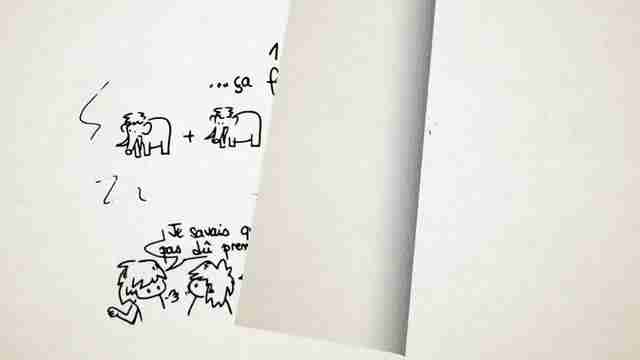 1
...sa f
+
Je savais q
pas dû pren